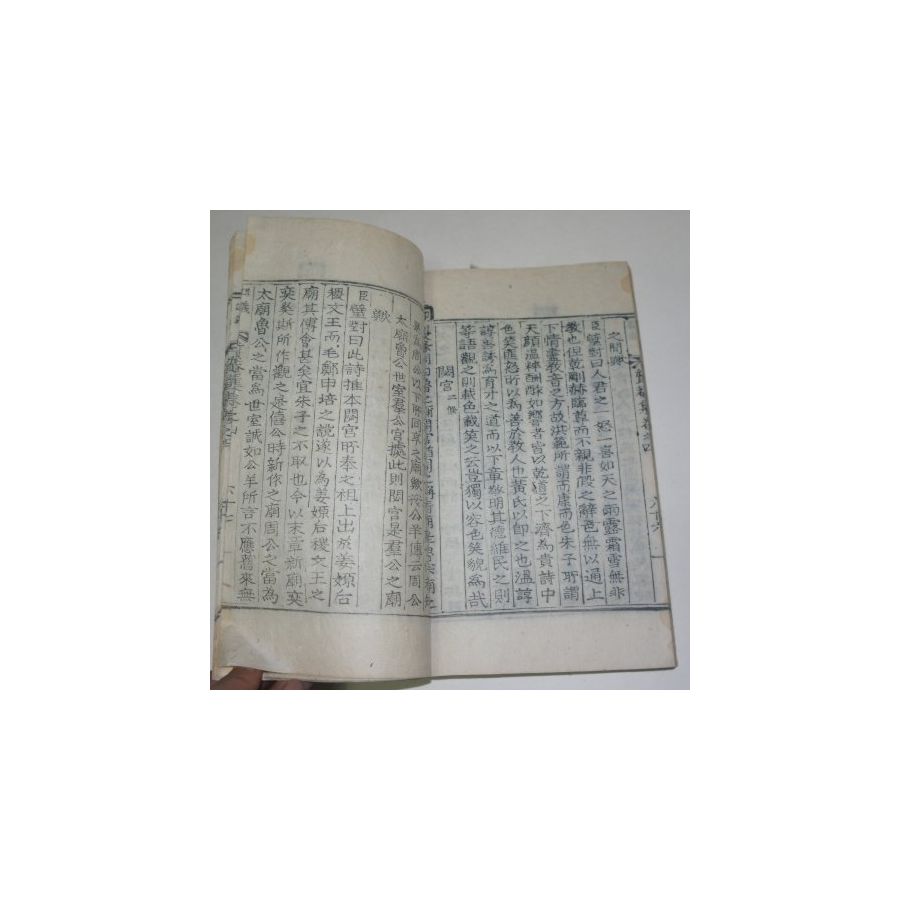 之間歟
臣璧對曰人君之一怒一喜如天之雨露霜雪無非
教也但乾剛赫臨尊而不親非假之辭色無以通上
下情盡教音之方故洪範所謂而康而色朱子所謂
天顔溫粹酬酢如響者皆以乾道之下濟為貴詩中
色笑匪怒所以為善於教人也黃氏以卽之也溫諄
諄善誘為育才之道而以下章敬明其德維民之則
等語觀之則載色載笑之云豈獨以容色笑貌為哉
閟宮二條
太廟魯公世室羣公宮據此則閟宮是羣公之廟
歟
臣璧對曰此詩推本閟宮所奉之祖上出於姜嫄后
稷文王而毛鄭申培之說遂以為姜嫄后稷文王之
廟其傅會甚矣宜朱子之不取也今以末章新廟奕
奕奚斯所作觀之是僖公時新作之廟周公之當為
太廟魯公之當為世室誠如公羊所言不應舊來無